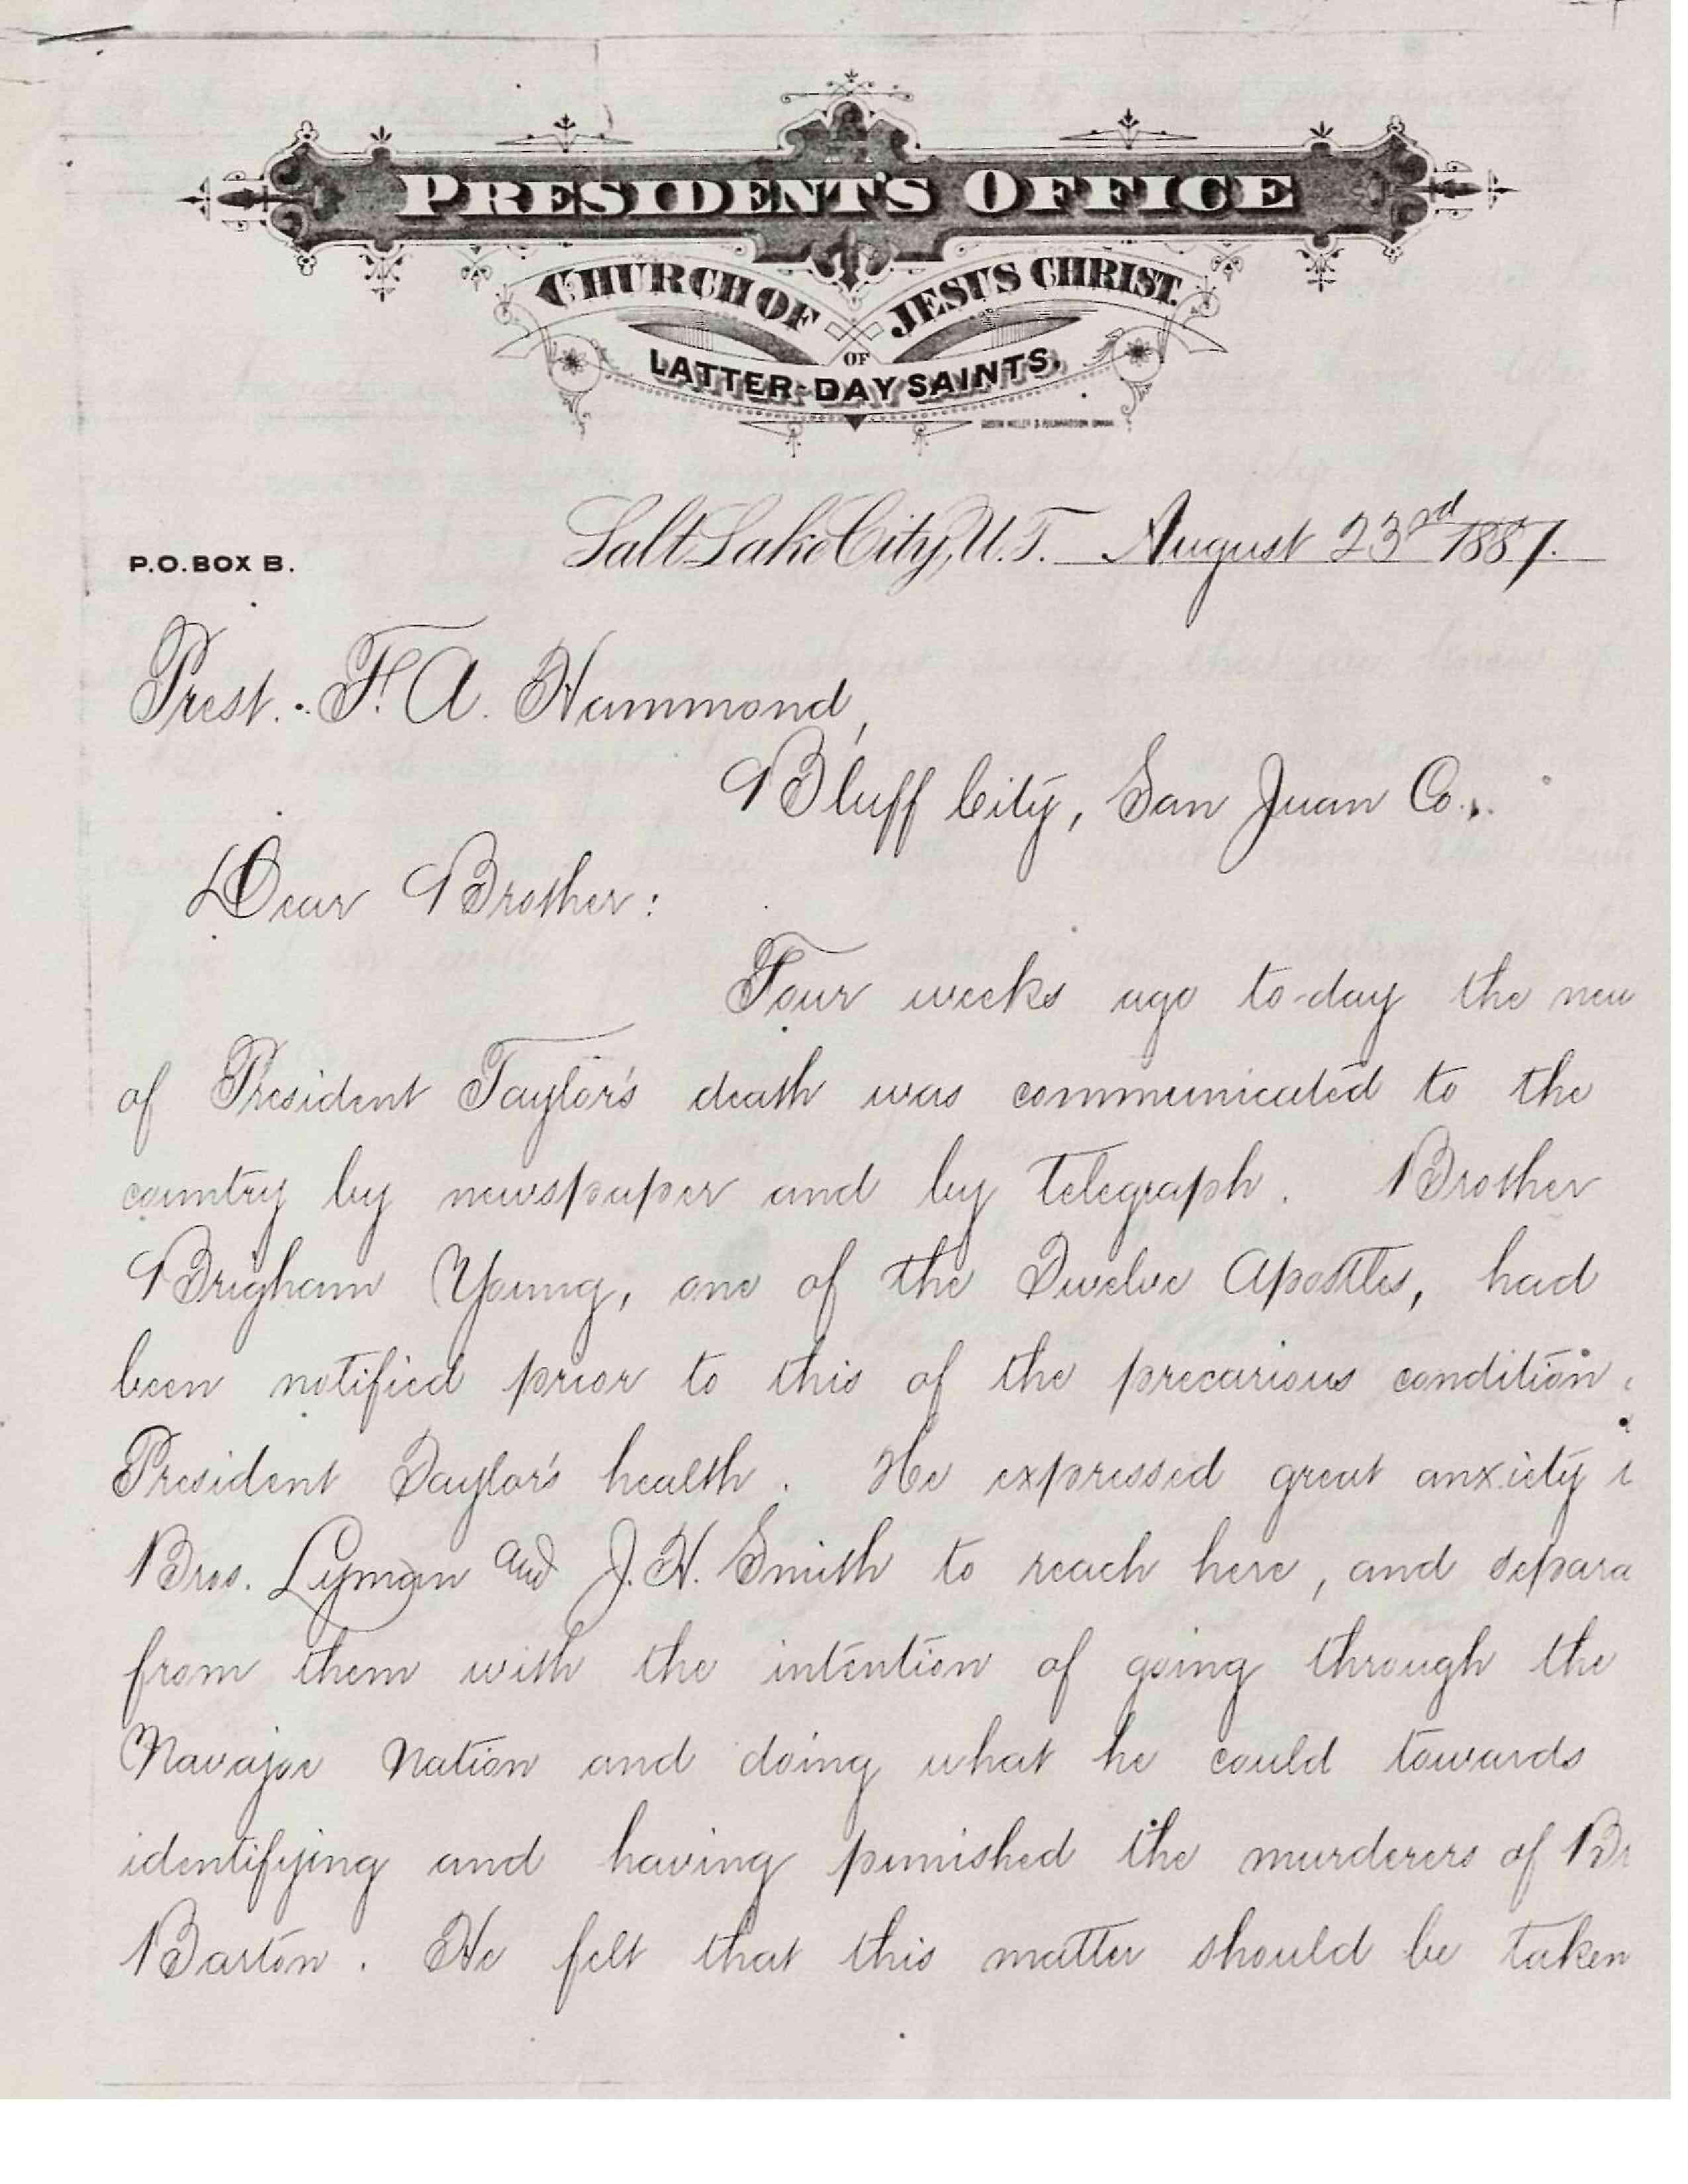 PRESIDENT'S OFFICE
CHURCH OF JESUS CHRIST
OF
LATTER-DAY SAINTS.
P.O. BOX B.
Salt Lake City, U.T. August 23rd 1887.
Prest. F. A. Hammond,
Bluff City, San Juan Co.
Dear Brother:
Four weeks ago to-day the new
of President Taylor's death was communicated to the
country by newspaper and by telegraph. Brother
Brigham Young, one of the Twelve Apostles, had
been notified prior to this of the precarious condition
President Taylor's health. He expressed great anxiety
Bros. Lyman and J. H. Smith to reach here, and separa
from them with the intention of going through the
Navajoe Nation and doing what he could towards
identifying and having punished the murderers of Br
Barton. He felt that this matter should be taken